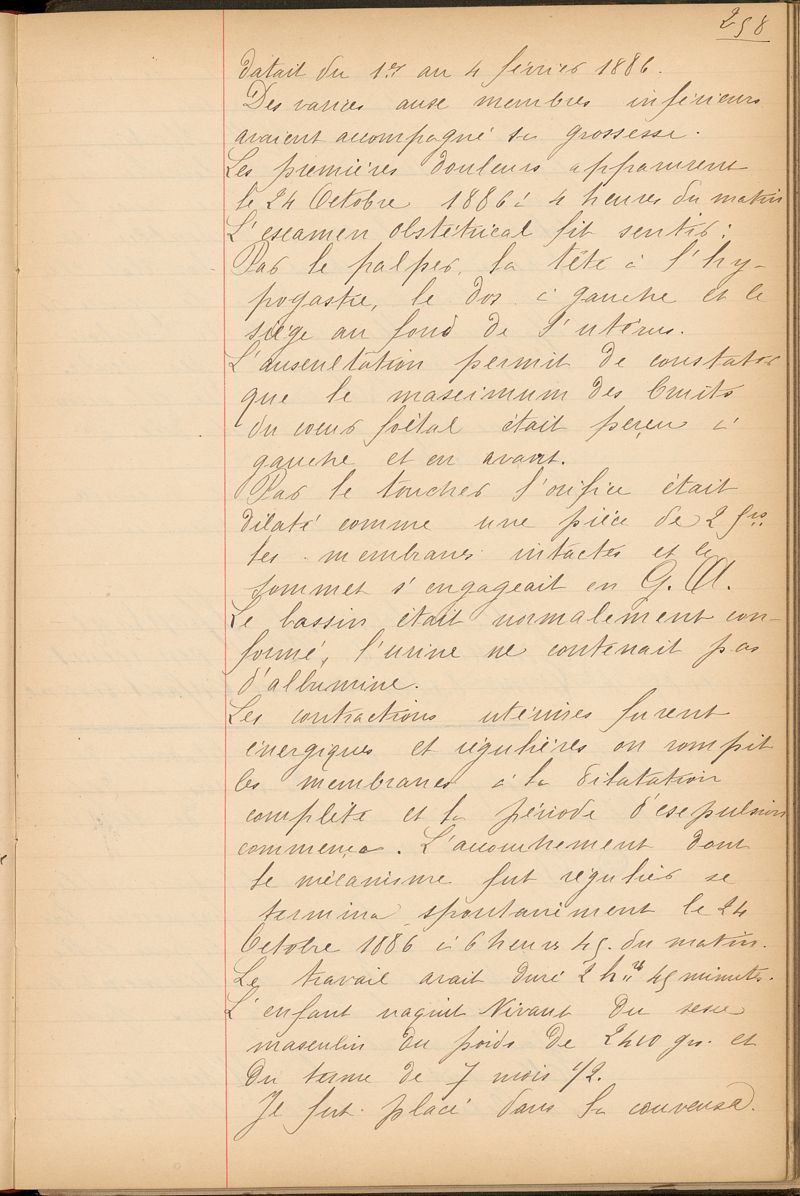 258
datait du 1er au 4 février 1886.
Des varices aux membres inférieurs
avaient accompagné sa grossesse.
Les premières douleurs apparurent
le 24 Octobre 1886 à 4 heures du matin
L'examen obstétrical fit sentir :
Par le palper, la tête à l'hy-
pogastre, le dos à gauche et le
siège au fond de l'utérus.
L'auscultation permit de constater
que le maximum des bruits
du coeur foetal était perçu à
gauche et en avant.
Par le toucher l'orifice était
dilaté comme une pièce de 2 frs
les membranes intactes et le
sommet s'engageait en G. A.
Le bassin était normalement con-
formé, l'urine ne contenait pas
d'albumine.
Les contractions utérines furent
énergiques et régulières on rompit
les membranes à la dilatation
complète et la période d'expulsion
commença. L'accouchement dont
le mécanisme fut régulier se
termina spontanément le 24
Octobre 1886 à 6 heures 45. du matin.
Le travail avait duré 2 hres 45 minutes.
L'enfant naquit Vivant du sexe
masculin du poids de 2400 grs. et
du terme de 7 mois 1/2.
Il fut placé dans la couveuse.